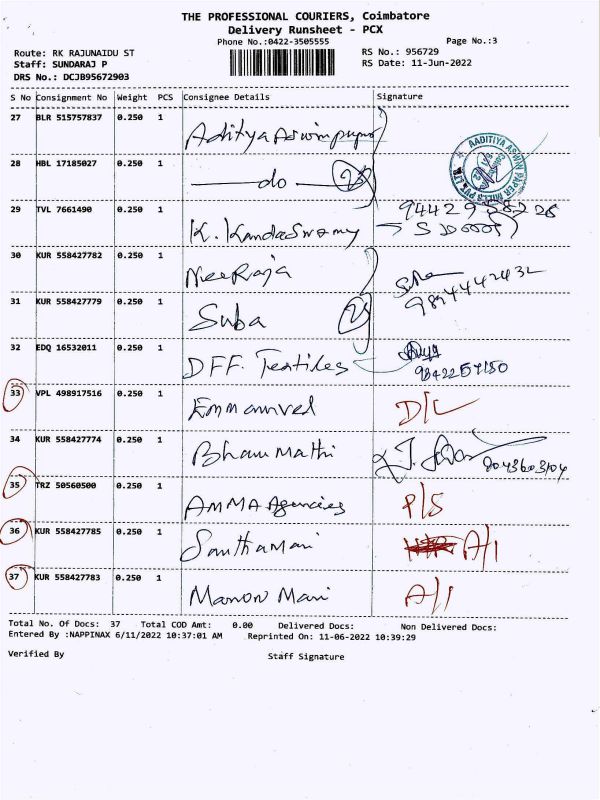 THE PROFESSIONAL COURIERS, Coimbatore
Delivery Runsheet - PCX
Phone No.:0422-3505555
Page No.:3
Route: RK RAJUNAIDU ST
RS No.: 956729
Staff: SUNDARAJ P
RS Date: 11-Jun-2022
DRS No.: DCJB95672903
S No Consignment No Weight PCS Consignee Details Signature
27 BLR 515757837 0.250 1 Aditya Aswin
AADITIYA ASWIN PAPER MILLS PVT LTD
28 HBL 17185027 0.250 1 do
29 TVL 7661490 0.250 1 K. Kandaswamy
30 KUR 558427782 0.250 1 Neeraja 9894442432
31 KUR 558427779 0.250 1 Suba
32 EDQ 16532011 0.250 1 DFF. Textiles
33 VPL 498917516 0.250 1 Emmanuvel D/L
34 KUR 558427774 0.250 1 Bhanu Mathi
35 TRZ 50560500 0.250 1 AMMA Agencies P/S
36 KUR 558427785 0.250 1 Santhamani A/1
37 KUR 558427783 0.250 1 Manon Mani A/1
Total No. Of Docs: 37 Total COD Amt: 0.00 Delivered Docs: Non Delivered Docs:
Entered By :NAPPINAX 6/11/2022 10:37:01 AM Reprinted On: 11-06-2022 10:39:29
Verified By Staff Signature